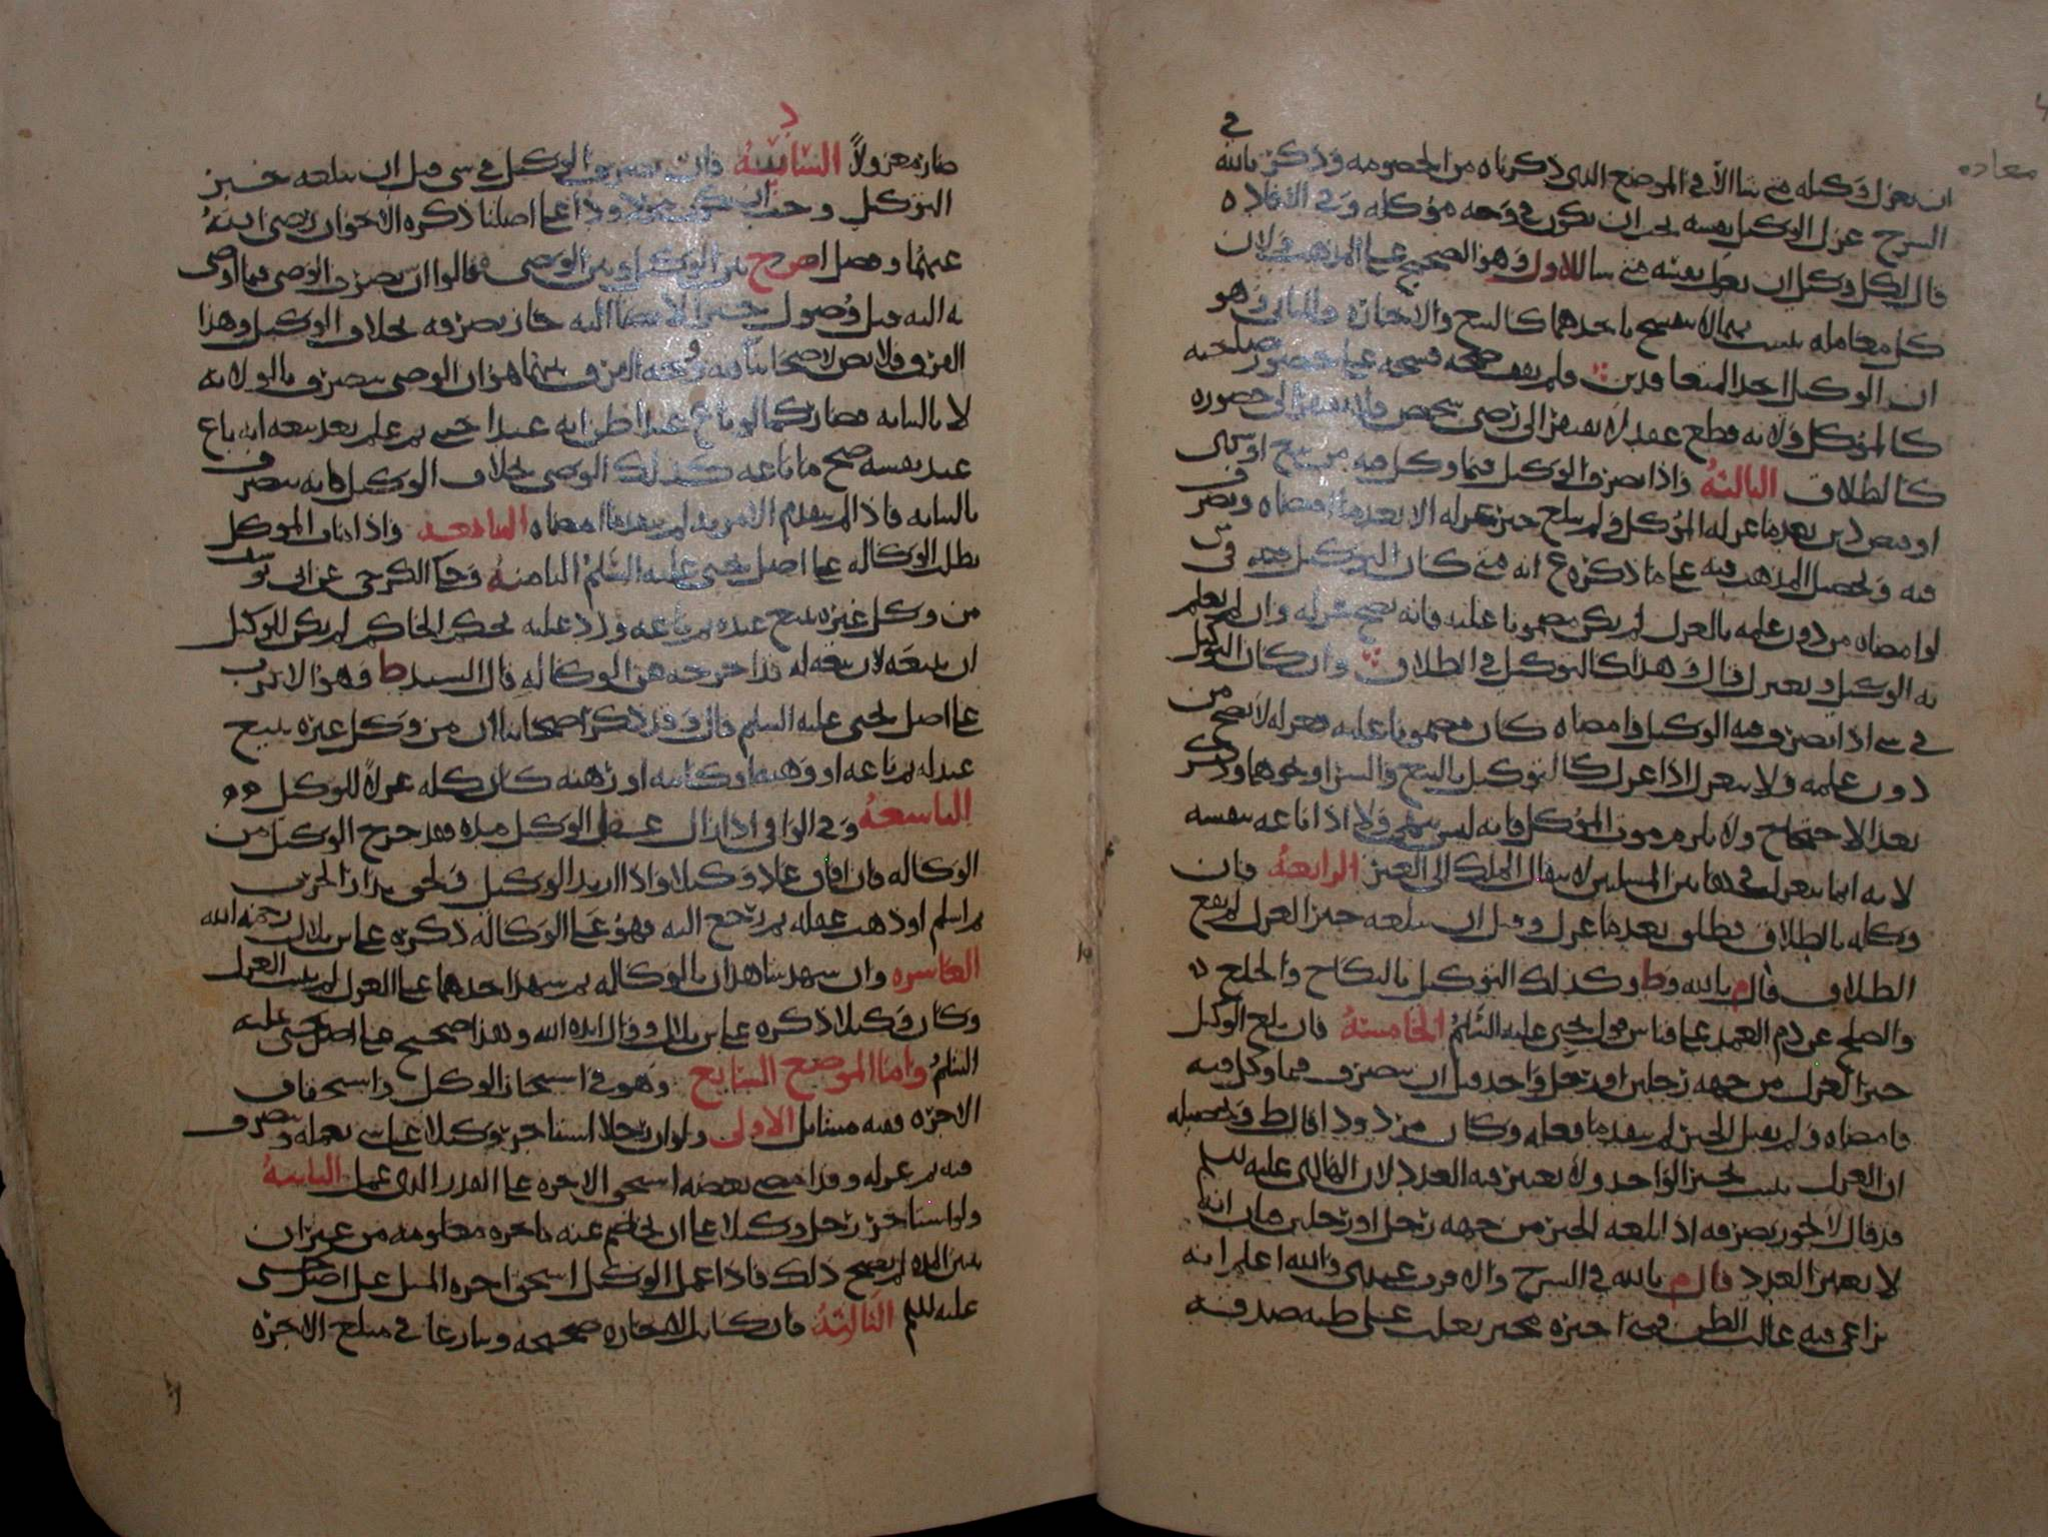 معاده
ان يعزل وكيله متى شا الا في الموضع الذي ذكرناه من الخصومه وذكر م بالله في
الشرح عزل الوكيل نفسه يجب ان يكون في وجه موكله وفي الافاده
قال لكل وكيل ان يعزل نفسه متى شا للاول وهو الصحيح على المذهب ولان
كل معامله ليست مما لا ينفسخ باحدهما كالبيع والاجاره والثاني وهو
ان الوكيل احد المتعاقدين فلم يقف صحه فسخه على حضور صاحبه
كالموكل ولانه قطع عقد لا يفتقر الى رضى شخص فلا يفتقر الى حضوره
كالطلاق الثالثه واذا تصرف الوكيل فيما وكل فيه من بيع او شرى
او قبض دين بعد ما عزله الموكل ولم يبلغ خبر عزله الا بعد ما امضاه وتصرف
فيه وتحصيل المذهب فيه على ما ذكره ع انه متى كان التوكيل في شي
لو امضاه من دون علمه بالعزل لم يكن مضمونا عليه فانه يصح عزله وان لم يعلم
به الوكيل وينعزل قال وهذا كالتوكيل في الطلاق وان كان التوكيل
في شي اذا تصرف فيه الوكيل وامضاه كان مضمونا عليه فعزله لا يصح من
دون علمه ولا ينعزل اذا عزل كالتوكيل بالبيع والشرا ونحوهما وذكر
بعد الاحتجاج ولا يلزم موت الموكل فانه ليس بنهي ولا اذا باعه بنفسه
لانه انما ينعزل في هاتين المسلتين لانتقال الملك الى الغير الرابعه فان
وكله بالطلاق فطلق بعد ما عزل وقبل ان يبلغه خبر العزل لم يقع
الطلاق قال م بالله وط وكذلك التوكيل بالنكاح والخلع
والصلح عن دم العمد على قياس قول يحيى عليه السلم الخامسه فان بلغ الوكيل
خبر العزل من جهه رجلين او رجل واحد قبل ان يتصرف فيما وكل فيه
فامضاه ولم يقبل الخبر لم ينفذ ما فعله وكان مردودا قال ط وتحصيله
ان العزل يثبت بخبر الواحد ولا يعتبر فيه العدد لان القاسم عليه السلم
قد قال لا يجوز تصرفه اذا بلغه الخبر من جهه رجل او رجلين فبان انه
لا يعتبر العدد قال م بالله في الشرح والاقرب عندي والله اعلم انه
يراعى فيه غالب الظن فمتى اخبره مخبر يغلب على ظنه صدقه
صار معزولا السادسه فان تصرف الوكيل في شي قبل ان يبلغه خبر
التوكيل وجب ان يكون مردودا على اصلنا ذكره الاخوان رضي الله
عنهما وفصل اصحاب ح بين الوكيل وبين الوصي فقالوا ان تصرف الوصي فيما اوصى
به اليه قبل وصول خبر الايصا اليه جاز تصرفه بخلاف الوكيل وهذا
الفرق فلا نص لاصحابنا فيه ووجه الفرق بينهما هو ان الوصي يتصرف بالولايه
لا بالنيابه فصار كما لو باع عبدا ظن انه عبد اخيه ثم علم بعد بيعه انه باع
عبد نفسه صح ما باعه كذلك الوصي بخلاف الوكيل فانه يتصرف
بالنيابه فاذا لم يتقدم الامر به لم ينفذ ما امضاه السابعه واذا مات الموكل
بطلت الوكاله على اصل يحيى عليه السلم الثامنه وحكى الكرخي عن ابي يوسف
من وكل غيره ببيع عبده ثم باعه ورد عليه بحكم الحاكم لم يكن للوكيل
ان يبيعه لان بيعه له قد اخرجه من الوكاله قال السيد ط وهو الاقرب
على اصل يحيى عليه السلم قال وقد ذكر اصحابنا ان من وكل غيره ببيع
عبد له ثم باعه او وهبه او كاتبه او رهنه كان كله عزلا للوكيل
التاسعه وفي الوافي اذا زال عقل الوكيل مده فقد خرج الوكيل من
الوكاله فان افاق عاد وكيلا واذا ارتد الوكيل ولحق بدار الحرب
ثم اسلم او ذهب عقله ثم رجع اليه فهو على الوكاله ذكره على بن بلال رحمه الله
العاشره وان شهد شاهدان بالوكاله ثم شهد احدهما على العزل لم يثبت العزل
وكان وكيلا ذكره على بن بلال وقال ايده الله وهذا صحيح على اصل يحيى عليه
السلم واما الموضع السابع وهو في استيجار الوكيل واستحقاق
الاجره ففيه مسائل الاولى ولو ان رجلا استاجر وكيلا على شي يعمله ويتصرف
فيه ثم عزله وقد امضى بعضه استحق الاجره على القدر الذي عمل الثانيه
ولو استاجر رجل وكيلا على ان يخاصم عنه باجره معلومه من غير ان
يبين المده لم يصح ذلك فاذا عمل الوكيل استحق اجره المثل على اصل يحيى
عليه السلم الثالثه فان كانت الاجاره صحيحه وتنازعا في مبلغ الاجره